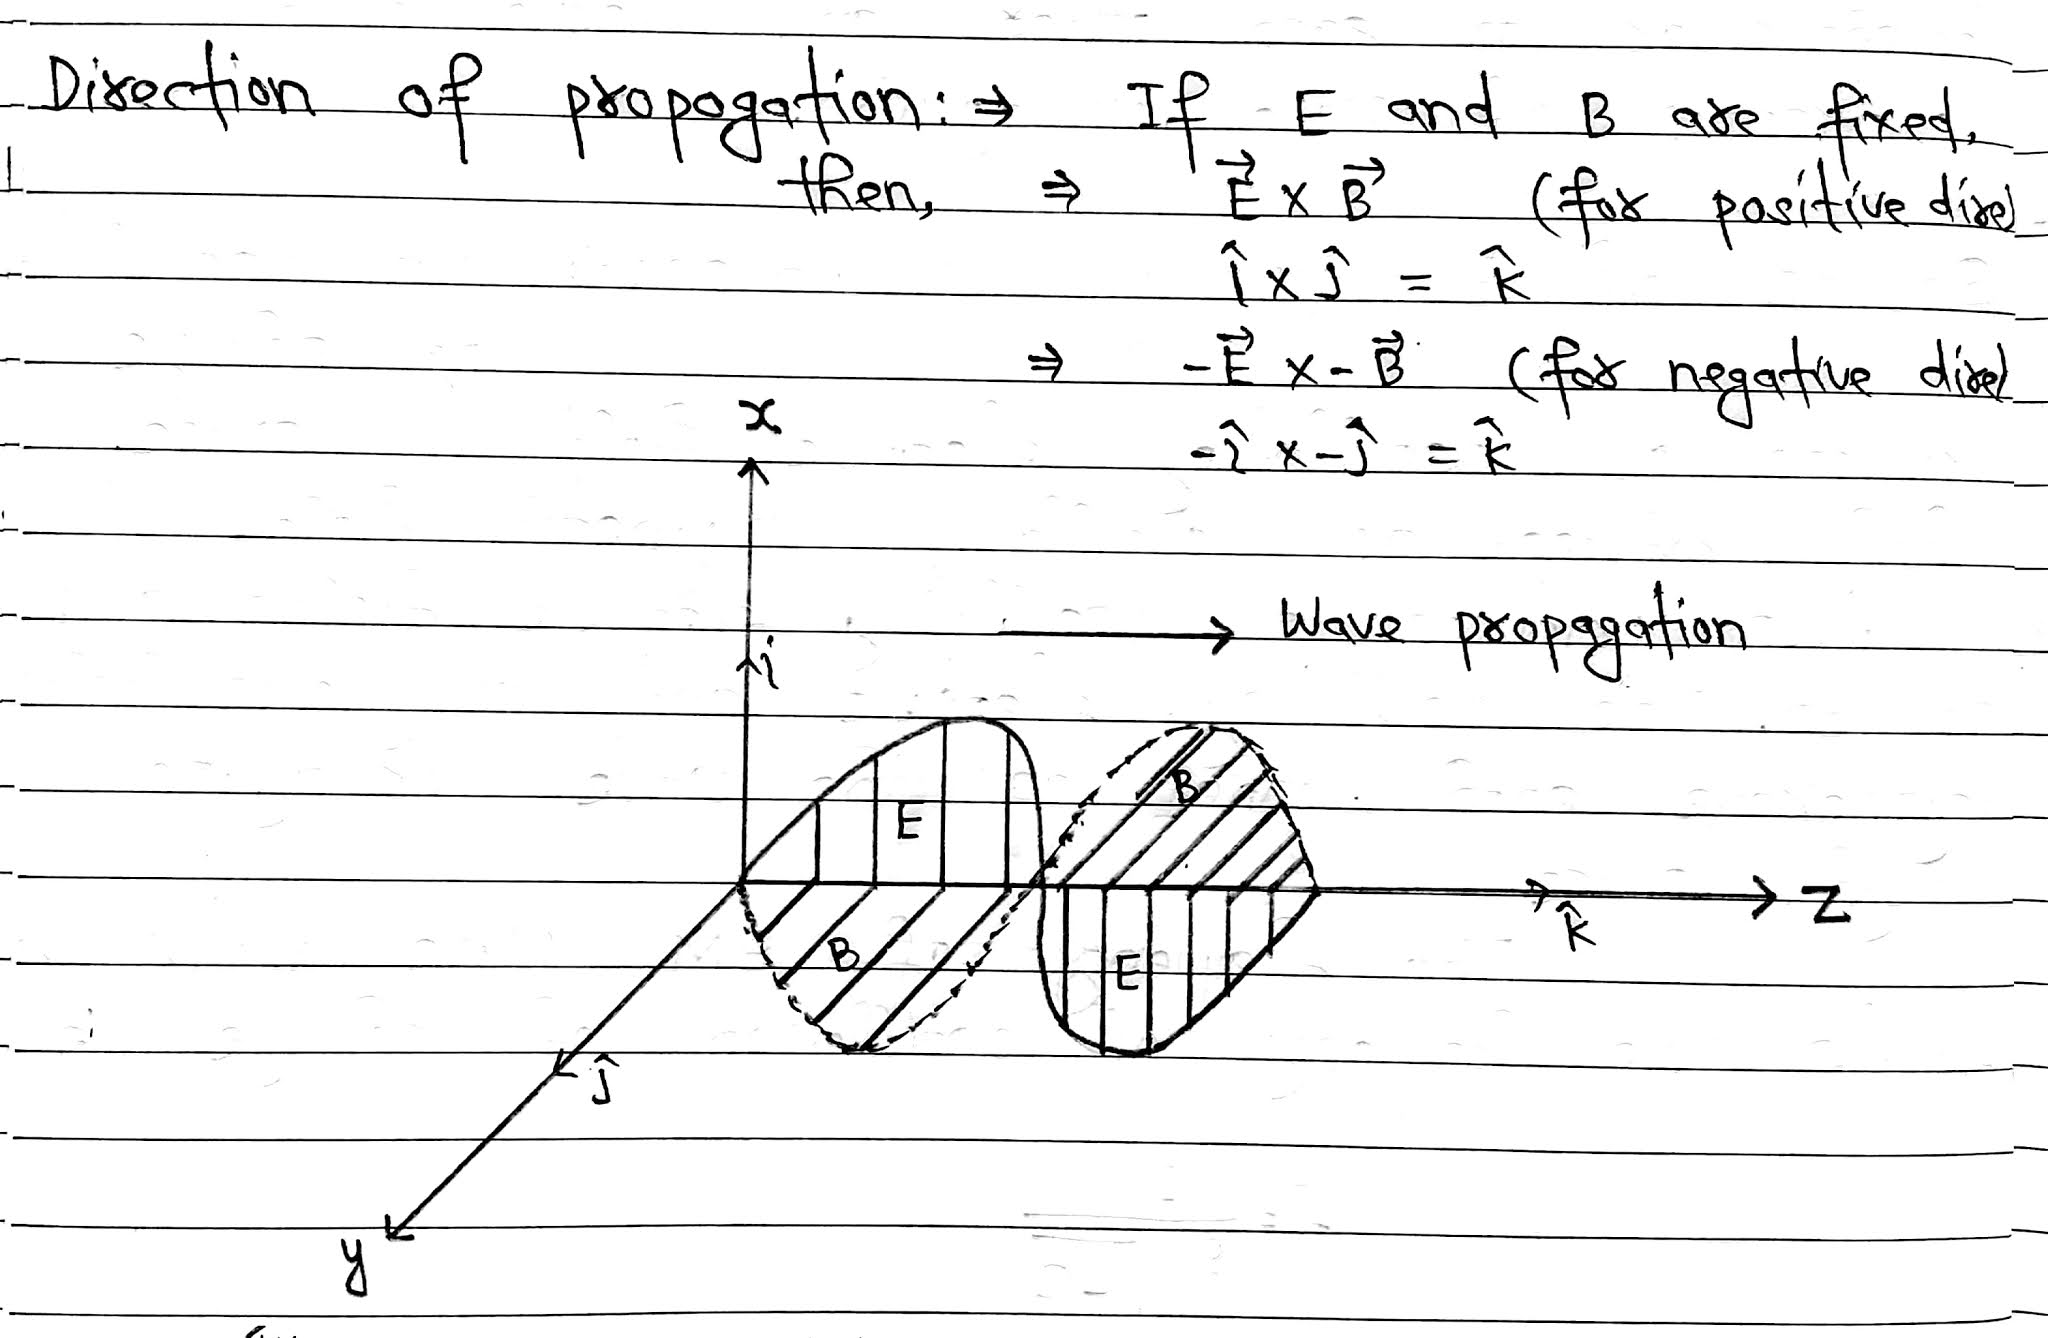 Direction of propogation: ⇒ If E and B are fixed,
then, ⇒ E⃗ x B⃗ (for positive dire)
î x ĵ = k̂
⇒ -E⃗ x -B⃗ (for negative dire)
-î x -ĵ = k̂
x
→ Wave propagation
i
B
E
k̂
Z
B
E
ĵ
y